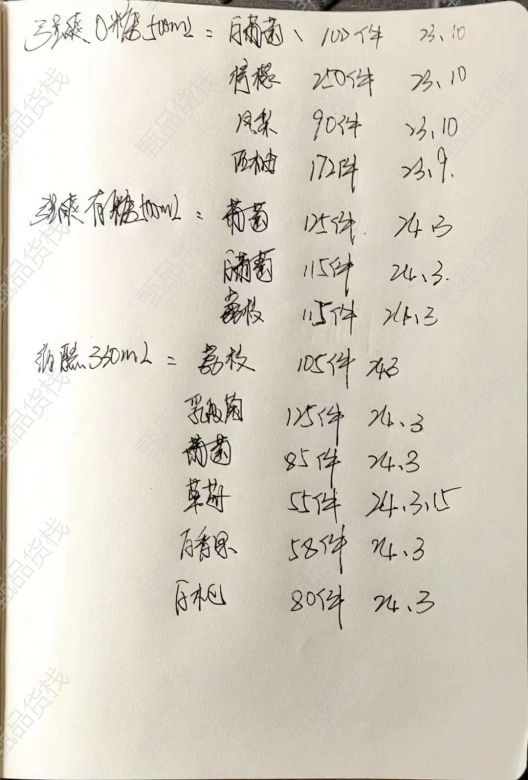 强爽0糖500mL = 白葡萄、 102件 23、10
柠檬 250件 23、10
凤梨 90件 23、10
西柚 172件 23、9.
强爽有糖500mL = 葡萄 125件. 24、3
白葡萄 115件 24、3.
荔枝 115件 24、3
微醺330mL = 荔枝 105件 24、3
乳酸菌 125件 24、3
葡萄 85件 24、3
草莓 55件 24、3、15
百香果 58件 24、3
白桃 80件 24、3
甄品货栈